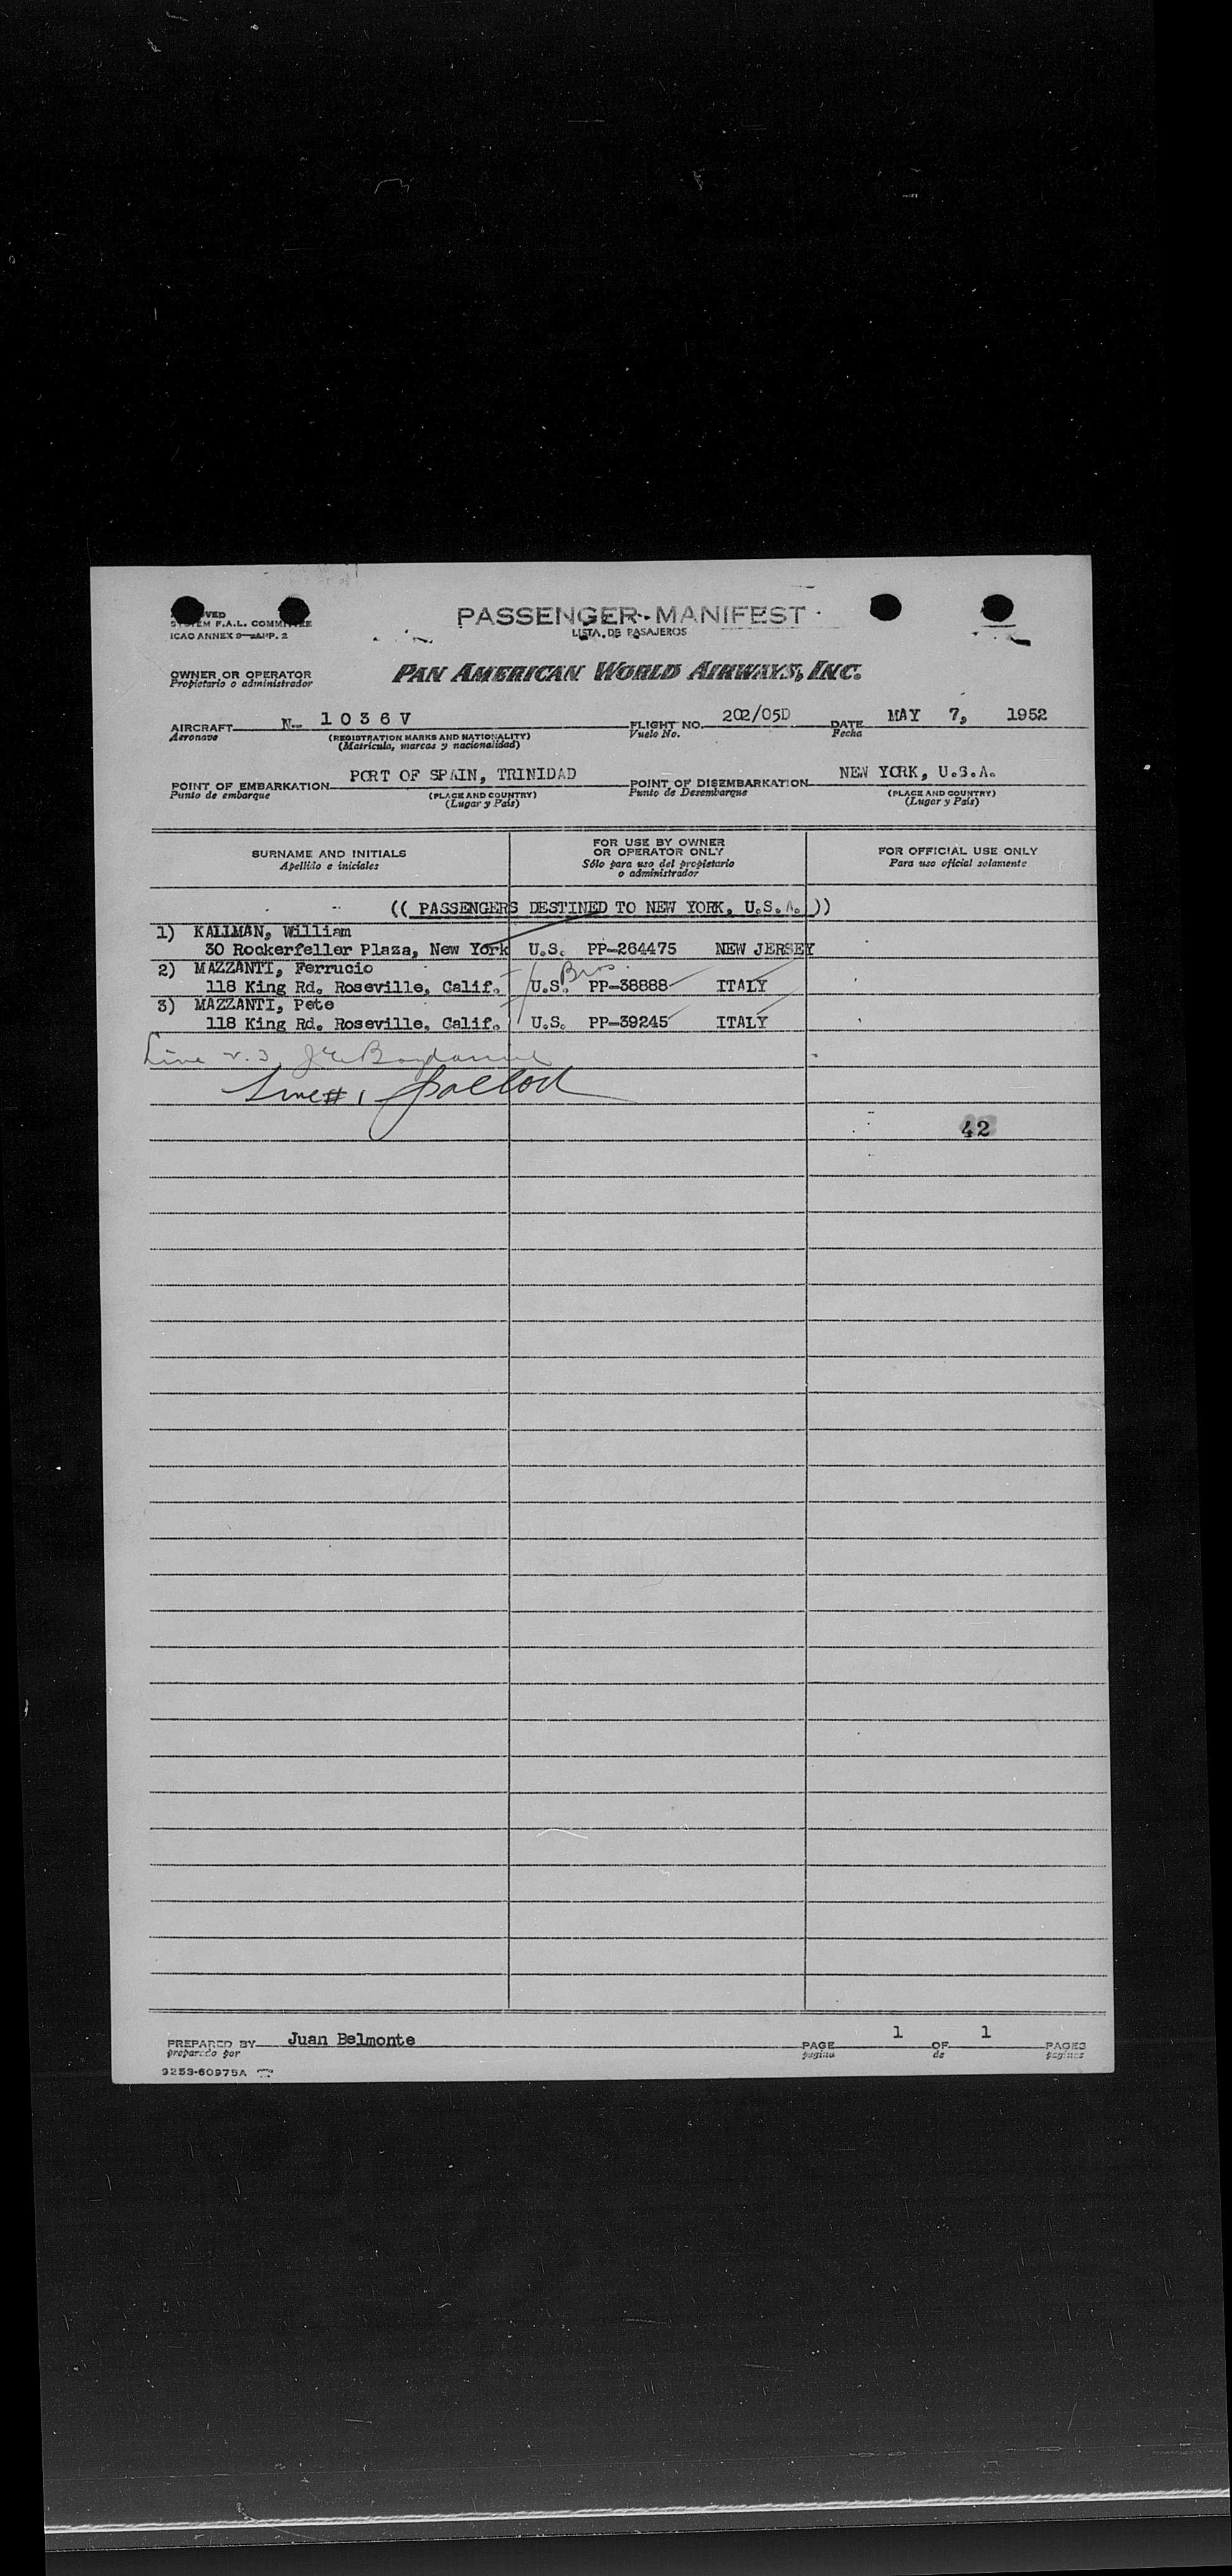 PASSENGER MANIFEST
LISTA DE PASAJEROS
SYSTEM F.A.L. COMMITTEE
ICAO ANNEX 9—APP. 2
OWNER OR OPERATOR
Propietario o administrador
PAN AMERICAN WORLD AIRWAYS, INC.
AIRCRAFT N- 1 0 3 6 V FLIGHT NO. 202/05D DATE MAY 7, 1952
Aeronave (REGISTRATION MARKS AND NATIONALITY) Vuelo No. Fecha
(Matrícula, marcas y nacionalidad)
POINT OF EMBARKATION PORT OF SPAIN, TRINIDAD POINT OF DISEMBARKATION NEW YORK, U.S.A.
Punto de embarque (PLACE AND COUNTRY) Punto de Desembarque (PLACE AND COUNTRY)
(Lugar y País) (Lugar y País)
SURNAME AND INITIALS
Apellido e iniciales
FOR USE BY OWNER
OR OPERATOR ONLY
Sólo para uso del propietario
o administrador
FOR OFFICIAL USE ONLY
Para uso oficial solamente
(( PASSENGERS DESTINED TO NEW YORK, U.S.A. ))
1) KALLMAN, William
30 Rockerfeller Plaza, New York U.S. PP-264475 NEW JERSEY
2) MAZZANTI, Ferrucio Bros.
118 King Rd. Roseville, Calif. U.S. PP-38888 ITALY
3) MAZZANTI, Pete
118 King Rd. Roseville, Calif. U.S. PP-39245 ITALY
Line 2.3
Line # 1
42
PREPARED BY Juan Belmonte PAGE 1 OF 1 PAGES
preparado por pagina de paginas
9253-60975A